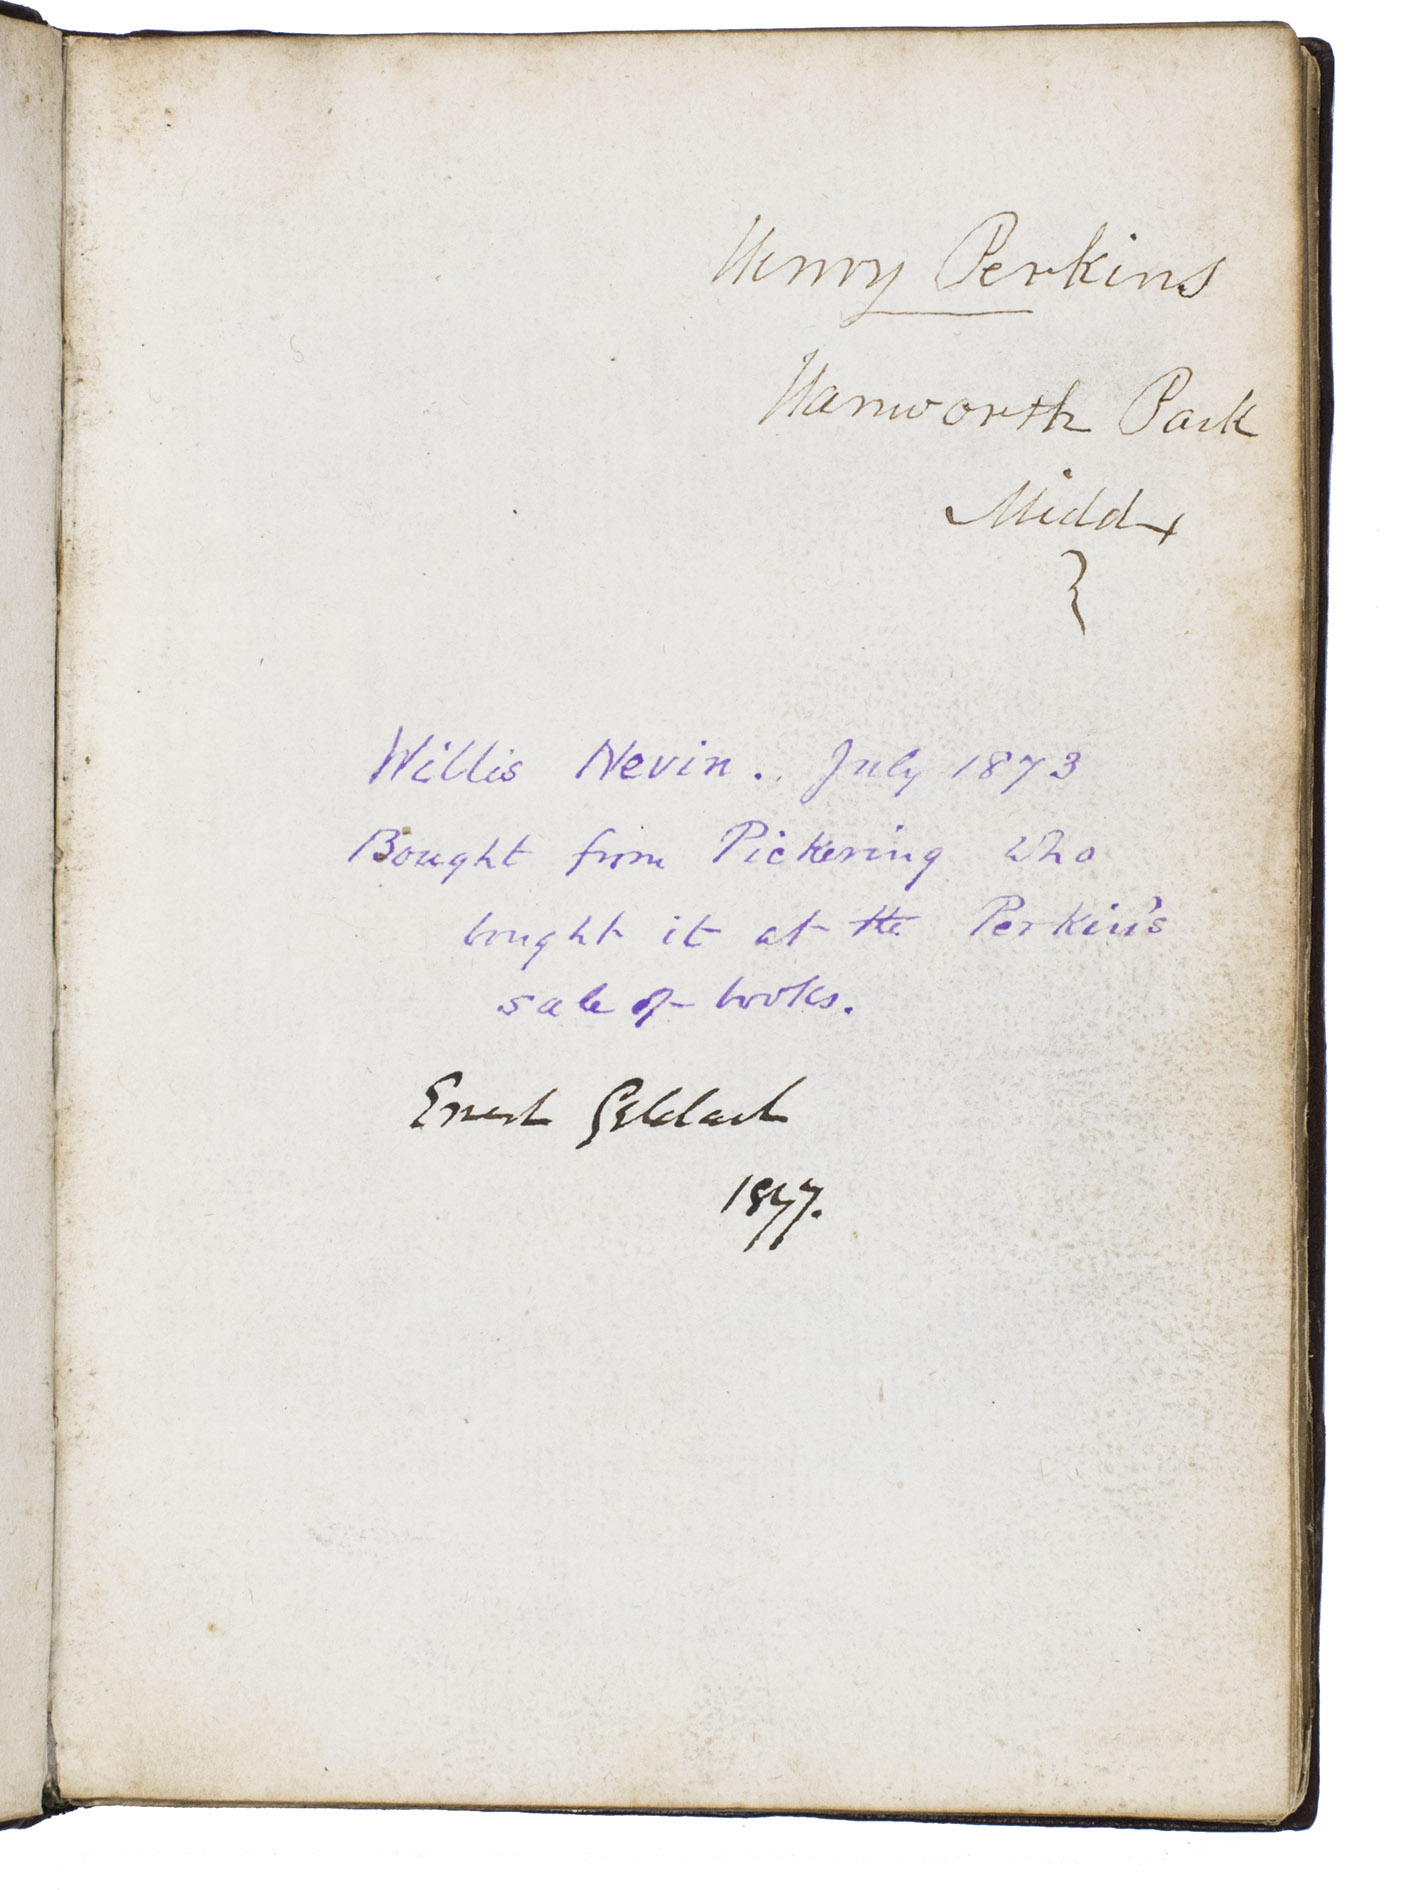 Henry Perkins
Hanworth Park
Middx
Willis Nevin. July 1873
Bought from Pickering who
bought it at the Perkin's
sale of books.
Ernest Geldart
1877.